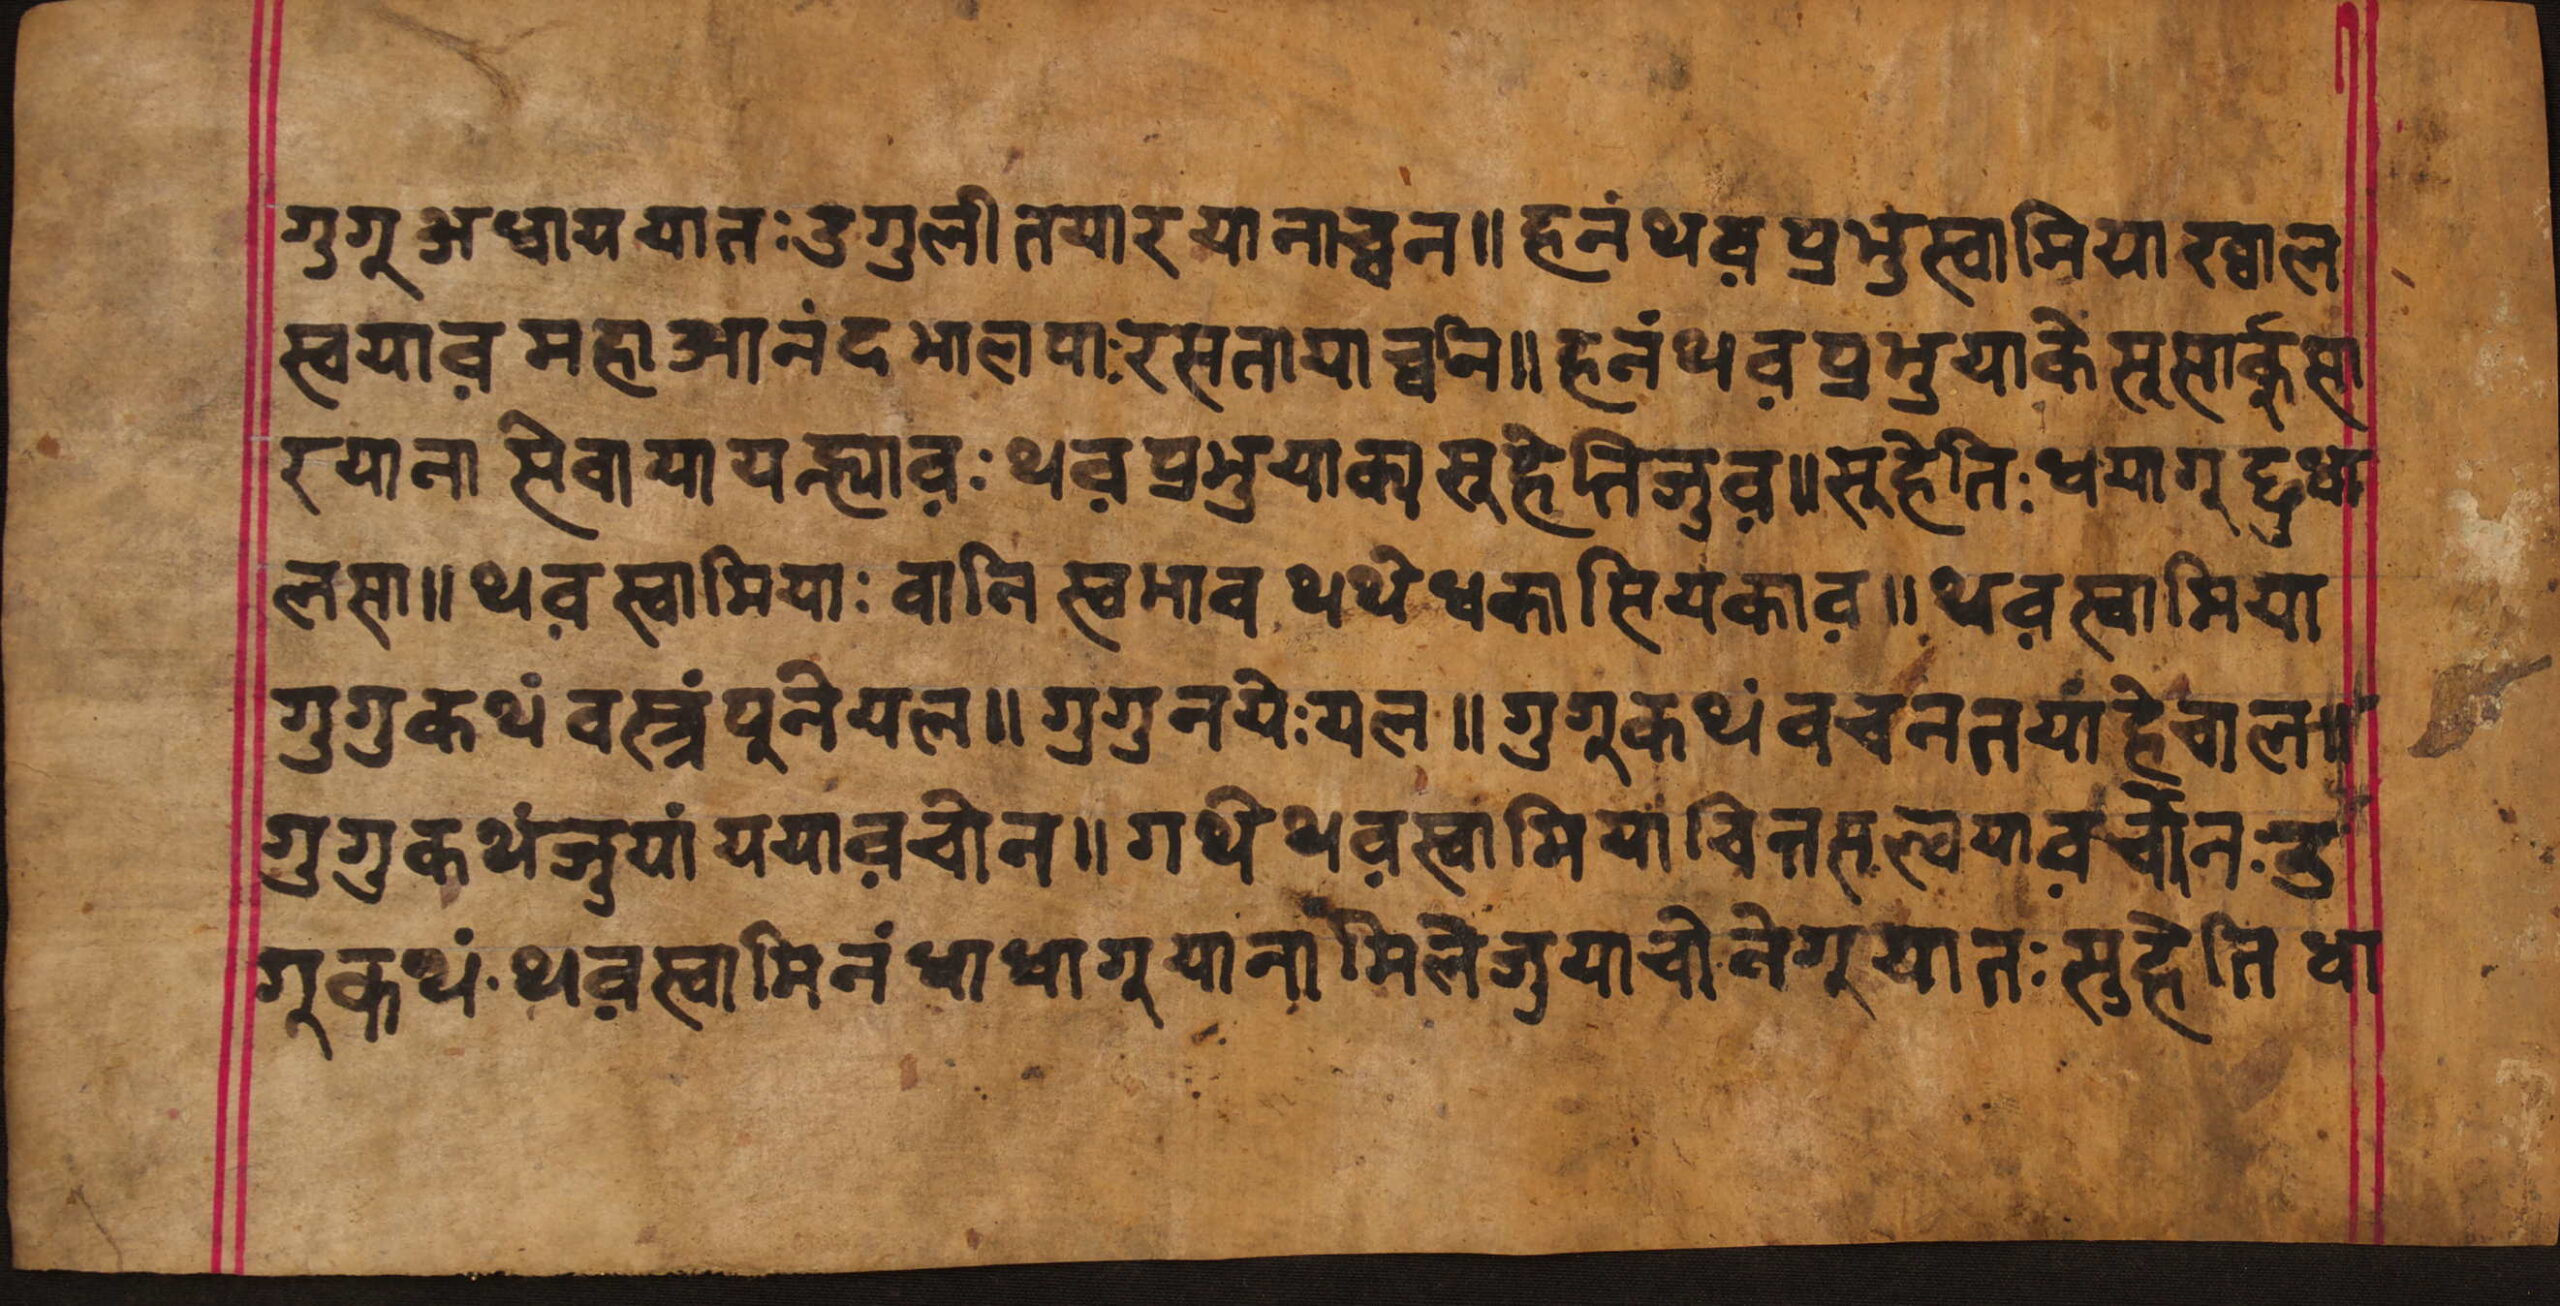 गुगू अध्वाय यात ः उगुली तयार याना च्वन ॥ हनं थव़ प्रभुस्वामिया ख्वाल
स्वयाव़ महा आनंद भालपा ः रसतायाच्वनि ॥ हनं थव़ प्रभुयाके सूसार्कूसा
रयाना सेवा याय न्ह्याव़ ः थव़ प्रभुयाक्य सूहेति जुव़ ॥ सूहेति ः धयागू द्रुधा
लसा ॥ थव़ स्वामिया ः वानि स्वभाव थथे धका सियकाव़ ॥ थव़ स्वामिया
गुगु कथं वस्त्रं पूने यल ॥ गुगु नये ः यल ॥ गुगू कथं वचन तयां हे चाल ॥
गुगु कथं जुयां ययाव़ चोन ॥ गथे थव़ स्वामिया चित्तस ल्वयाव़ चोन ः उ
गू कथं थव़ स्वामिनं धाधागू यानां मिले जुया चोनेगू यात ः सुहेति धा